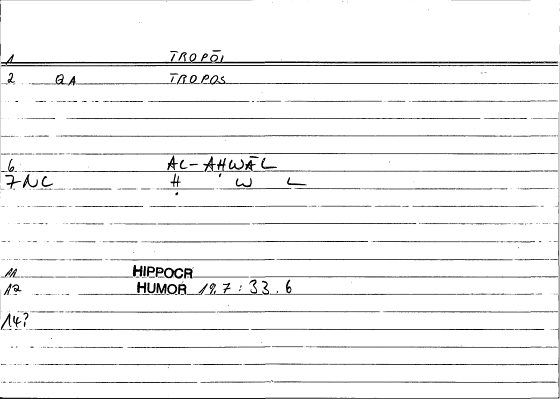 1 TROPŌI
2 QA TROPOS
6 AL-AḤWĀL
7 NC Ḥ W L
11 HIPPOCR
12 HUMOR 19.7 : 33.6
14?